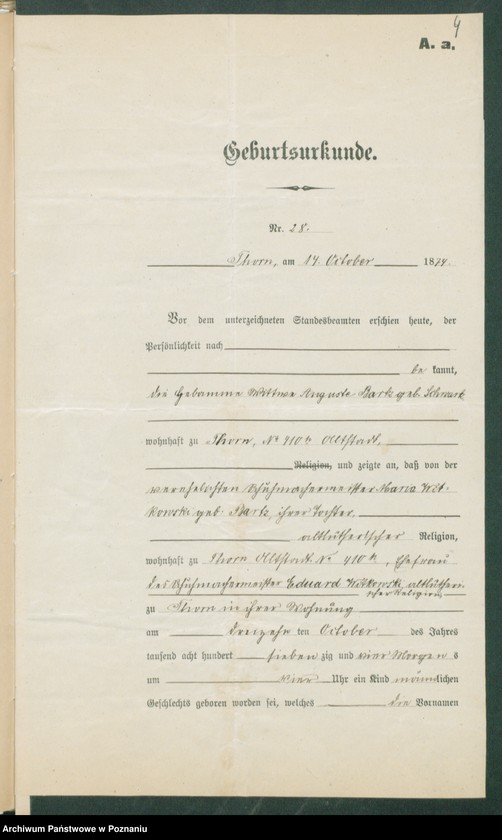 4
A. a.
Geburtsurkunde.
Nr. 28.
Thorn, am 14. October 1874.
Vor dem unterzeichneten Standesbeamten erschien heute, der
Persönlichkeit nach
be kannt,
die Hebamme Wittwe Auguste Bartz geb. Schwartz
wohnhaft zu Thorn, No 410 Altstadt,
Religion, und zeigte an, daß von der
verehelichten Schuhmachermeister Maria Wit-
kowski geb. Bartz, ihrer Tochter,
altlutherischer Religion,
wohnhaft zu Thorn Altstadt No 410, Ehefrau
des Schuhmachermeister Eduard Witkowski, altlutheri-
scher Religion
zu Thorn in ihrer Wohnung
am dreizehn ten October des Jahres
tausend acht hundert sieben zig und vier Morgens
um vier Uhr ein Kind männlichen
Geschlechts geboren worden sei, welches die Vornamen
Archiwum Państwowe w Poznaniu